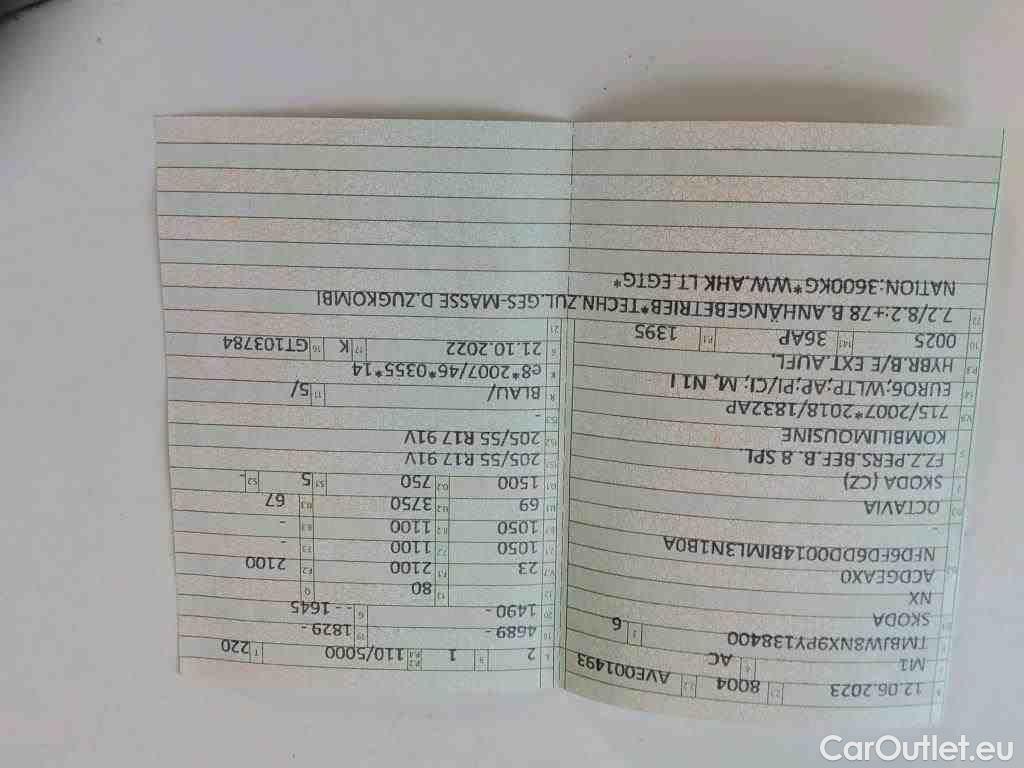 12.06.2023 8004 AVE001493
M1 AC
TMBJW8NX9PY138400 6
SKODA
NX
ACDGEAX0
NFD6FD6DD0014BIML3N1B0A
-
OCTAVIA
SKODA (CZ)
FZ.Z.PERS.BEF.B. 8 SPL.
KOMBILIMOUSINE
715/2007*2018/1832AP
EURO6;WLTP;AP;PI/CI; M, N1 I
HYBR.B/E EXT.AUFL.
0025 36AP 1395
2 1 110/5000 220
4689 - 1829 -
1490 - - - 1645
80
23 2100 2100
1050 1100 -
1050 1100 -
69 3750 67
1500 750 5 -
205/55 R17 91V
205/55 R17 91V
-
BLAU/ 5/
e8*2007/46*0355*14
21.10.2022 K GT103784
7.2/8.2:+78 B.ANHÄNGEBETRIEB*TECHN.ZUL.GES-MASSE D.ZUGKOMBI
NATION:3600KG*WW.AHK LT.EGTG*
CarOutlet.eu